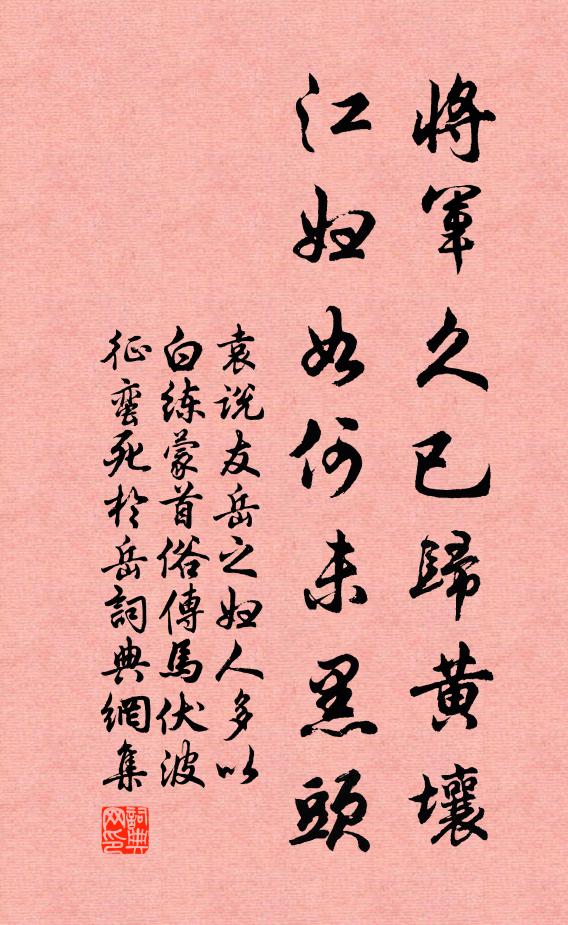 將軍久已歸黄壤
江婦如何未黑頭
袁说友岳之妇人多以
白练蒙首俗傳馬伏波
征蛮死於岳詞典網集
詞典
网印